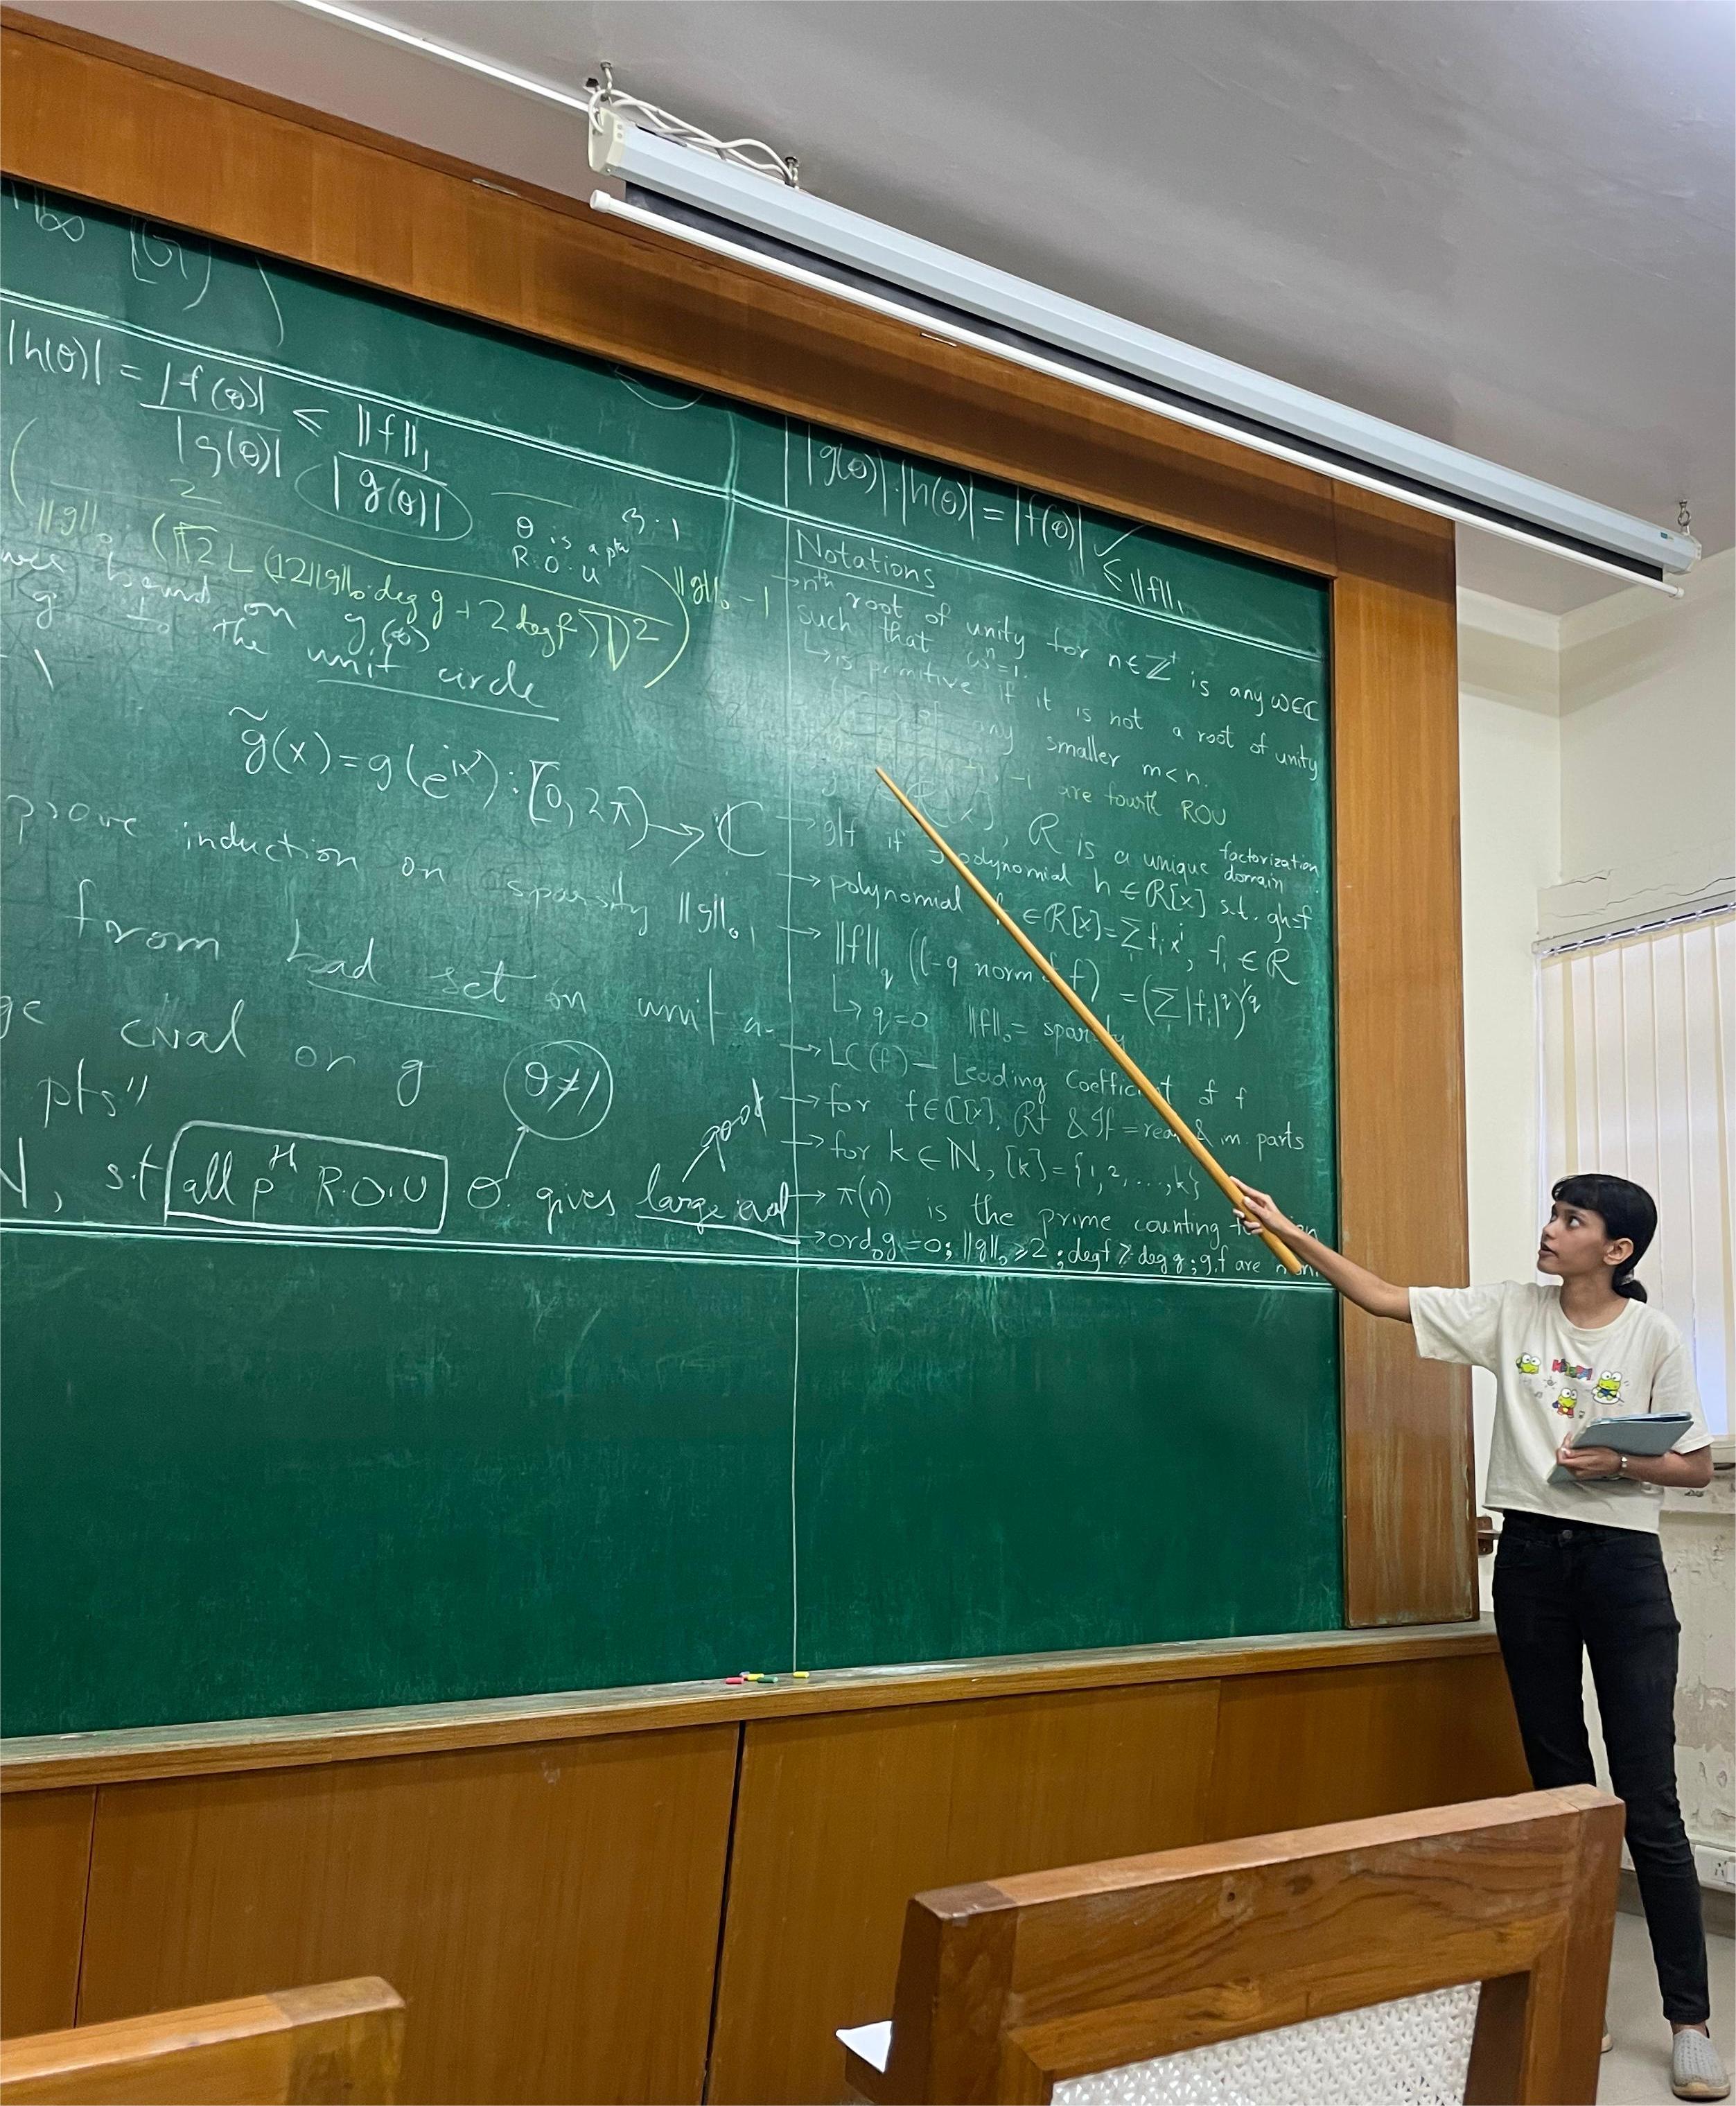 |h(θ)| = |f(θ)| / |g(θ)| ≤ ||f||₁ / |g(θ)|
θ is a pth
R.O.U
2
||g||₀ (√2 L (12||g||₀·deg g + 2 deg f)²) ||g||₀ - 1
bound on g(θ)
g to the unit circle
g̃(x) = g(e^{ix}) : [0, 2π) → ℂ
prove induction on sparsity ||g||₀,
from bad set on unit
eval on g θ≠1
pts"
good
s.t all pth R.O.U θ gives large eval
|g(θ)|·|h(θ)| = |f(θ)| ✓
≤ ||f||₁
Notations
→ nth root of unity for n ∈ ℤ⁺ is any ω ∈ ℂ
such that ωⁿ = 1.
↳ is primitive if it is not a root of unity
any smaller m < n.
-1 are fourth ROU
[x], R is a unique factorization domain
→ g|f if ∃ polynomial h ∈ R[x] s.t. gh=f
→ polynomial f ∈ R[x] = Σ fᵢxⁱ, fᵢ ∈ R
→ ||f||_q (l-q norm of f) = (Σ|fᵢ|^q)^{1/q}
↳ q=0 ||f||₀ =
→ LC(f) – Leading Coefficient of f
→ for f ∈ ℂ[x], Rf & If = & im. parts
→ for k ∈ ℕ, [k] = {1, 2, ..., k}
→ π(n) is the prime counting
→ ord₀g = 0; ||g||₀ ≥ 2; deg f ≥ deg g; g, f are